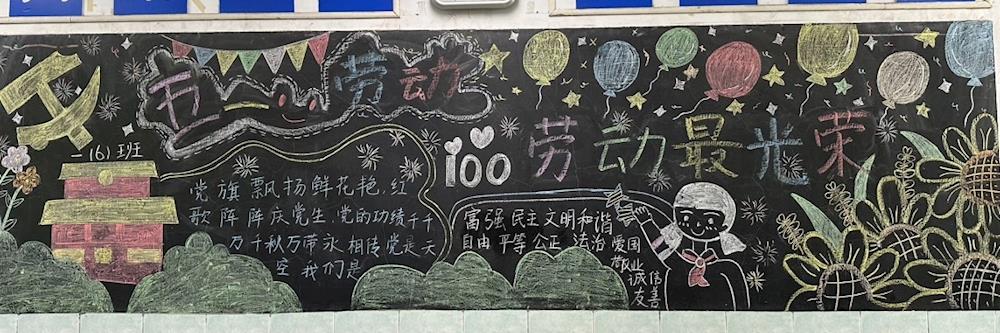 五一劳动
100 劳动最光荣
一(6)班
党旗飘扬鲜花艳,红
歌阵阵庆党生,党的功绩千千
万千秋万带永相传党是天
空我们是
富强民主文明和谐
自由平等公正法治爱国
敬业
诚信
友善